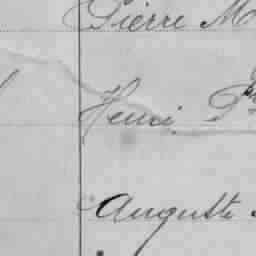 Pierre M
Henri P
Auguste